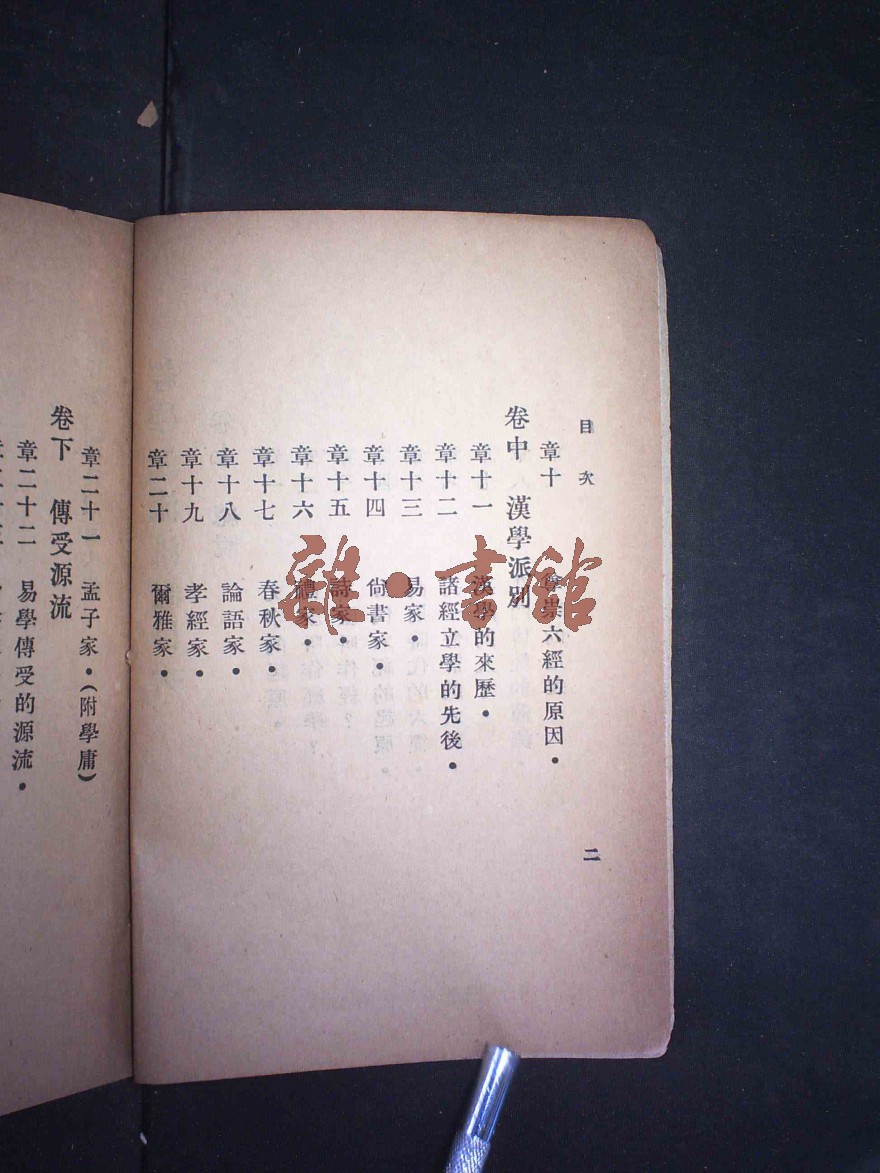 目次
章十 尊崇六經的原因．
卷中 漢學派別
章十一 漢學的來歷．
章十二 諸經立學的先後．
章十三 易家．
章十四 尙書家．
章十五 詩家．
章十六 禮家．
章十七 春秋家．
章十八 論語家．
章十九 孝經家．
章二十 爾雅家．
二
章二十一 孟子家．(附學庸)
卷下 傳受源流
章二十二 易學傳受的源流．
雜·書館